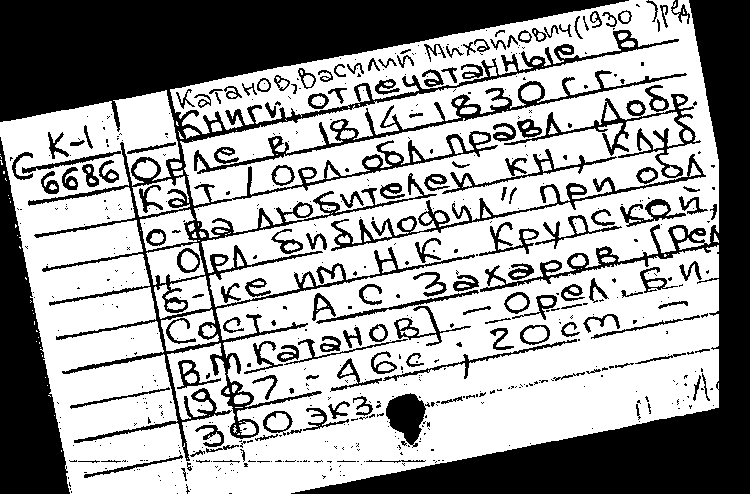 Катанов, Василий Михайлович (1930 ), ред
Книги, отпечатанные в
К-1
С 6686
Орле в 1814-1830 г.г. :
Кат. / Орл. обл. правл. Добр.
о-ва любителей кн., Клуб
„Орл. библиофил" при обл.
б-ке им. Н.К. Крупской;
Сост.: А.С. Захаров ; [Ред
В.М. Катанов]. — Орел : Б.и.
1987. - 46 с. ; 20 cm. —
300 экз.